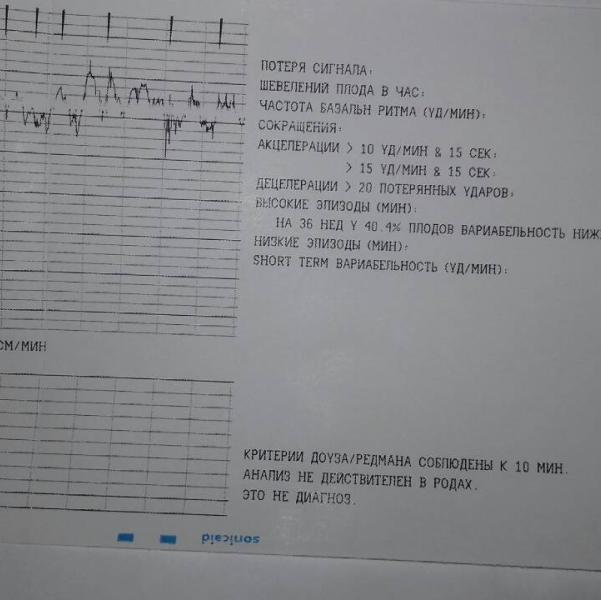 ПОТЕРЯ СИГНАЛА:
ШЕВЕЛЕНИЙ ПЛОДА В ЧАС:
ЧАСТОТА БАЗАЛЬН РИТМА (УД/МИН):
СОКРАЩЕНИЯ:
АКЦЕЛЕРАЦИИ > 10 УД/МИН & 15 СЕК:
> 15 УД/МИН & 15 СЕК:
ДЕЦЕЛЕРАЦИИ > 20 ПОТЕРЯННЫХ УДАРОВ:
ВЫСОКИЕ ЭПИЗОДЫ (МИН):
НА 36 НЕД У 40.4% ПЛОДОВ ВАРИАБЕЛЬНОСТЬ НИЖ
НИЗКИЕ ЭПИЗОДЫ (МИН):
SHORT TERM ВАРИАБЕЛЬНОСТЬ (УД/МИН):
СМ/МИН
КРИТЕРИИ ДОУЗА/РЕДМАНА СОБЛЮДЕНЫ К 10 МИН.
АНАЛИЗ НЕ ДЕЙСТВИТЕЛЕН В РОДАХ.
ЭТО НЕ ДИАГНОЗ.
sonicaid